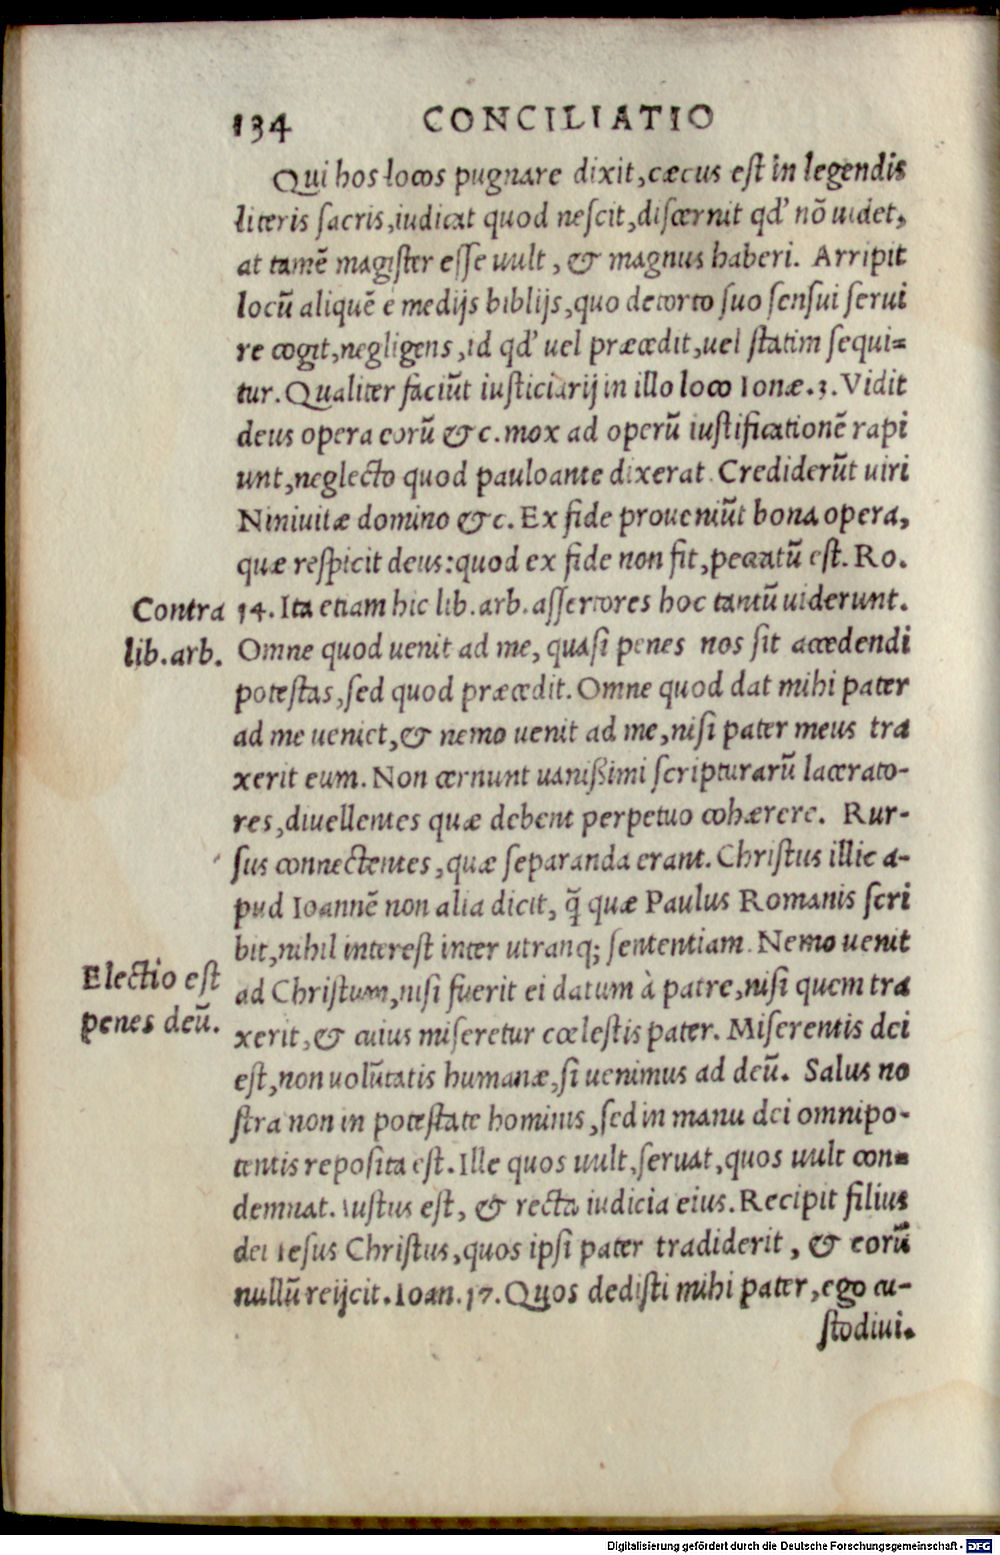 134 CONCILIATIO
Qui hos locos pugnare dixit, cæcus est in legendis
literis sacris, iudicat quod nescit, discernit qd' nō uidet,
at tamē magister esse uult, & magnus haberi. Arripit
locū aliquē e medijs biblijs, quo detorto suo sensui serui
re cogit, negligens, id qd' uel præcedit, uel statim sequi=
tur. Qualiter faciūt iusticiarij in illo loco Ionæ. 3. Vidit
deus opera eorū &c. mox ad operū iustificationē rapi
unt, neglecto quod pauloante dixerat. Crediderūt uiri
Niniuitæ domino &c. Ex fide proueniūt bona opera,
quæ respicit deus: quod ex fide non fit, peccatū est. Ro.
Contra 14. Ita etiam hic lib. arb. assertores hoc tantū uiderunt.
lib. arb. Omne quod uenit ad me, quasi penes nos sit accedendi
potestas, sed quod præcedit. Omne quod dat mihi pater
ad me ueniet, & nemo uenit ad me, nisi pater meus tra
xerit eum. Non cernunt uanißimi scripturarū lacerato-
res, diuellentes quæ debent perpetuo cohærere. Rur-
sus connectentes, quæ separanda erant. Christus illic a-
pud Ioannē non alia dicit, q̄ quæ Paulus Romanis scri
bit, nihil interest inter utranq; sententiam. Nemo uenit
Electio est ad Christum, nisi fuerit ei datum à patre, nisi quem tra
penes deū. xerit, & cuius miseretur cœlestis pater. Miserentis dei
est, non uolūtatis humanæ, si uenimus ad deū. Salus no
stra non in potestate hominis, sed in manu dei omnipo-
tentis reposita est. Ille quos uult, seruat, quos uult con=
demnat. Iustus est, & recta iudicia eius. Recipit filius
dei Iesus Christus, quos ipsi pater tradiderit, & eorū
nullū reijcit. Ioan. 17. Quos dedisti mihi pater, ego cu-
stodiui.
Digitalisierung gefördert durch die Deutsche Forschungsgemeinschaft - DFG